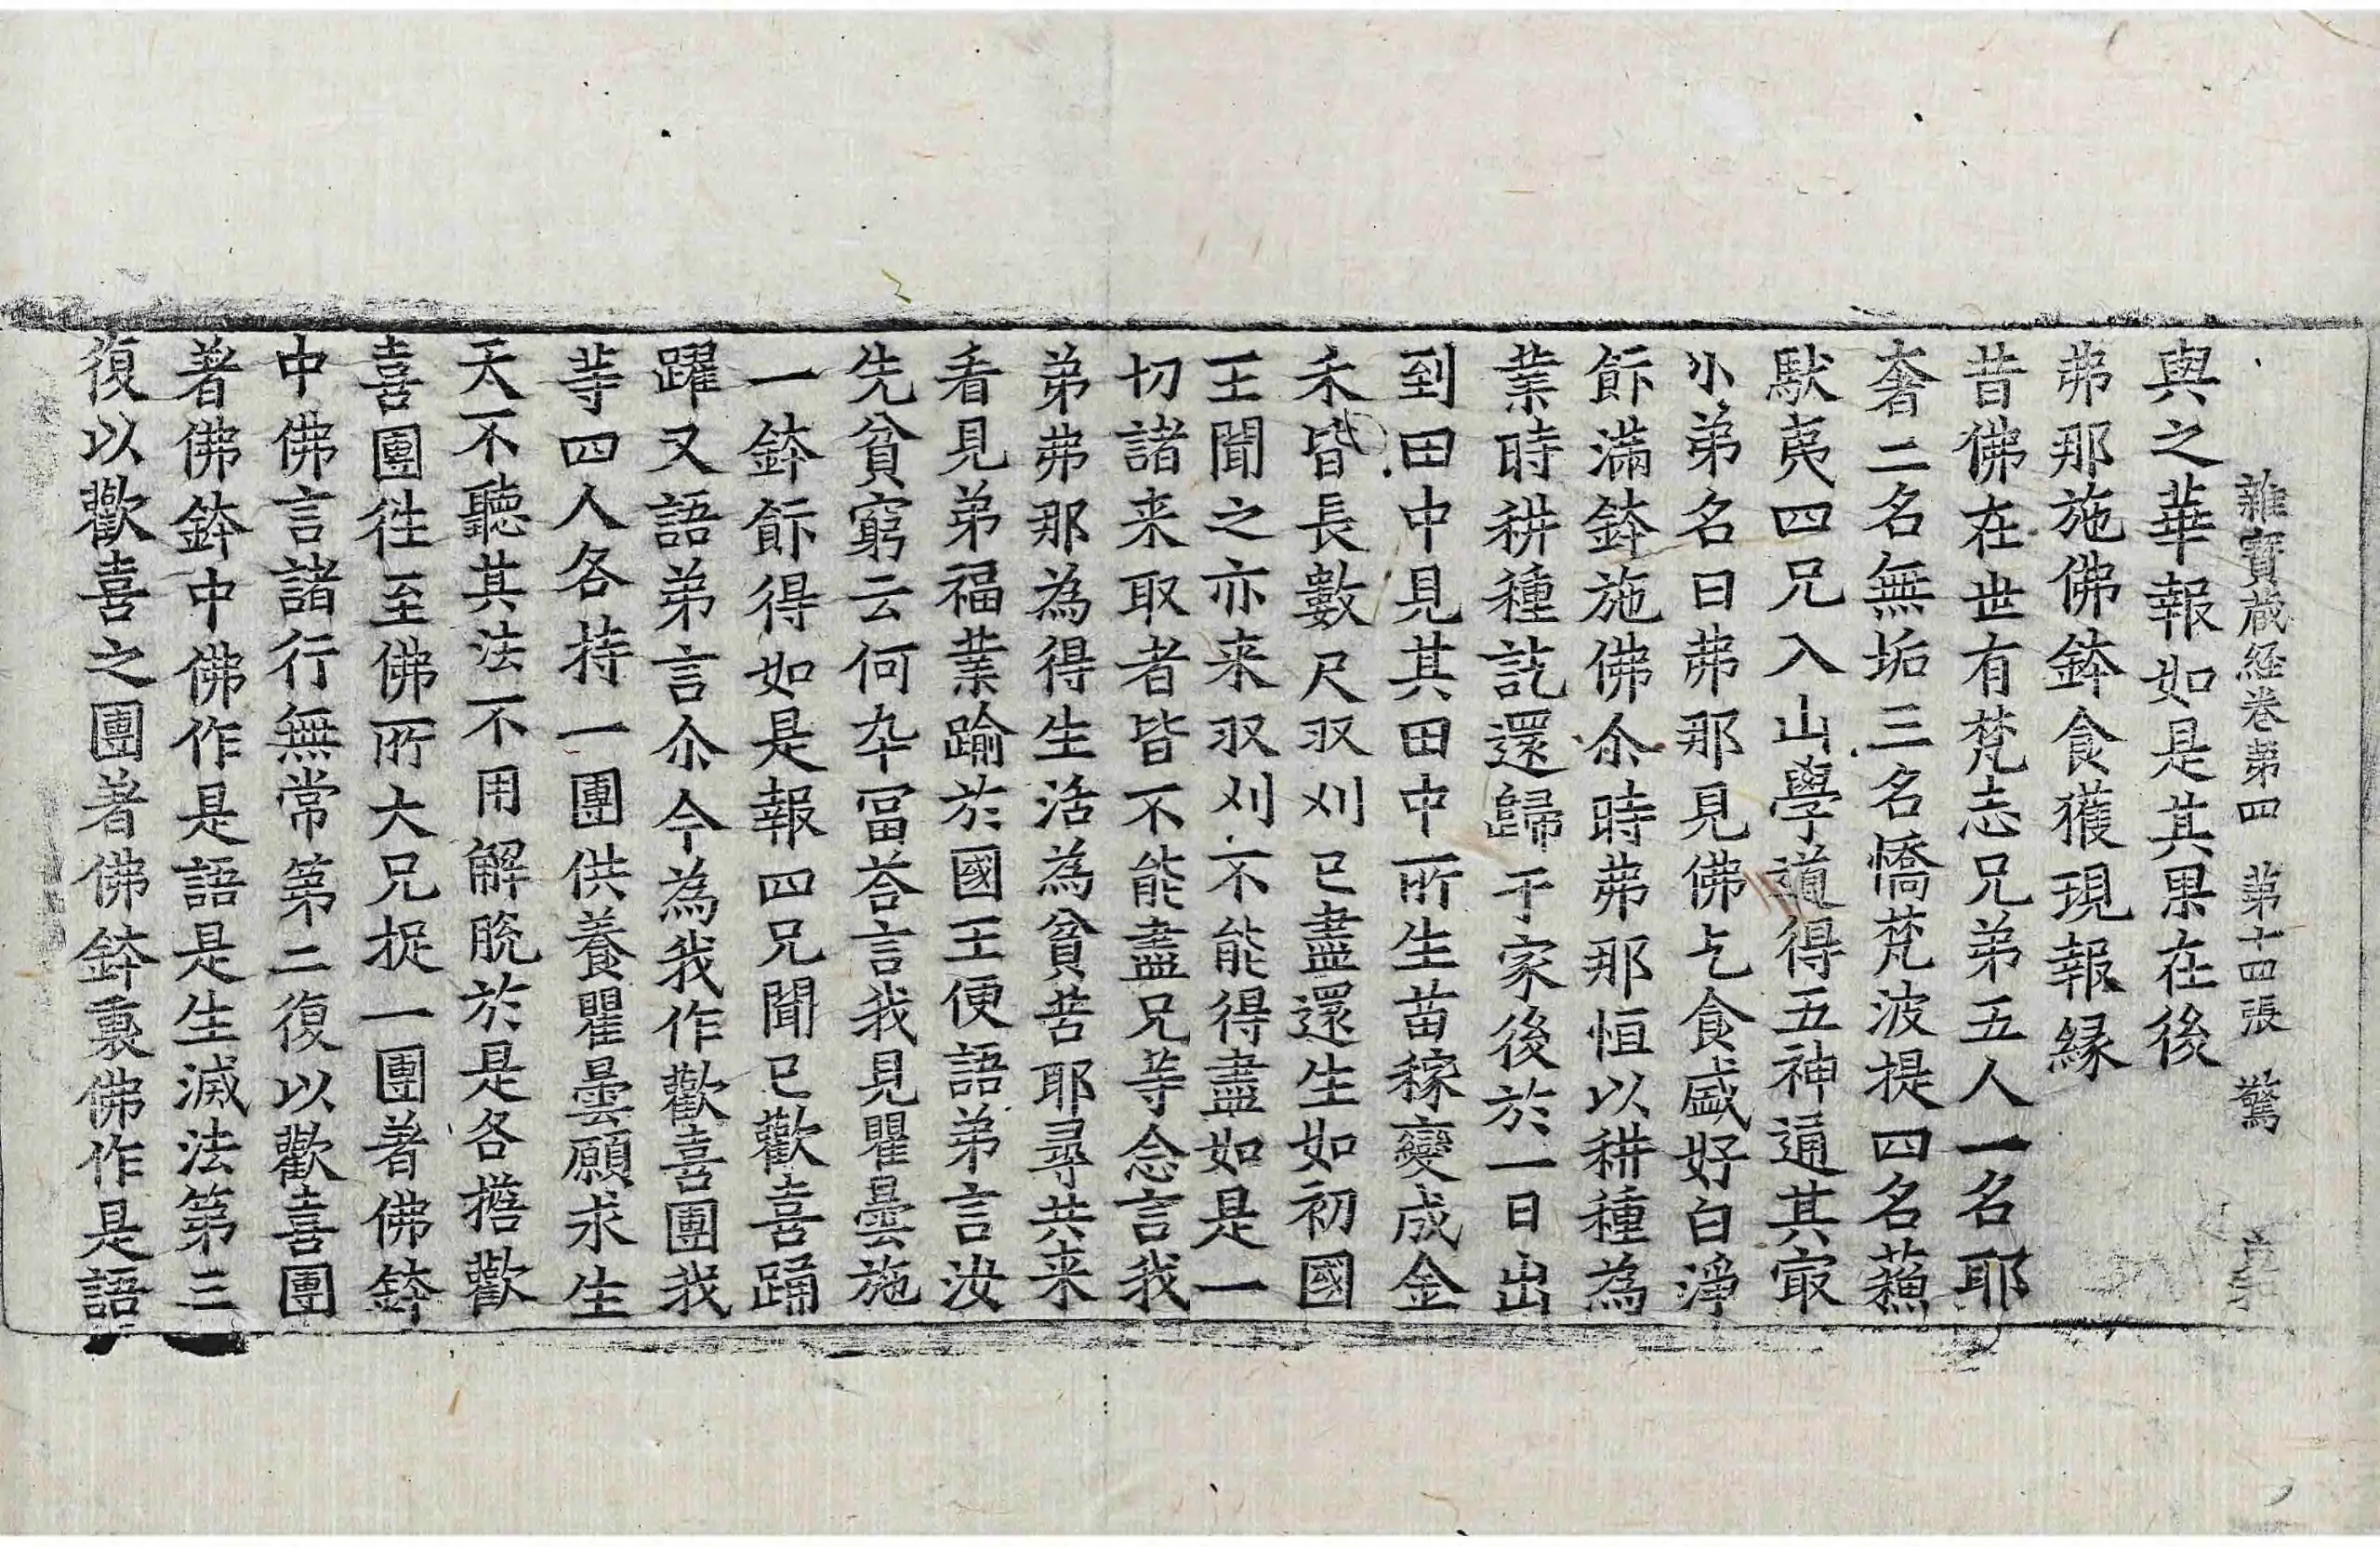 雜寶藏經卷第四 第十四張 驚
與之華報如是其果在後
弗那施佛鉢食獲現報緣
昔佛在世有梵志兄弟五人一名耶
奢二名無垢三名憍梵波提四名蘓
馱夷四兄入山學道得五神通其㝡
小弟名曰弗那見佛乞食盛好白淨
飰滿鉢施佛尒時弗那恒以耕種為
業時耕種訖還歸于家後於一日出
到田中見其田中所生苗稼變成金
禾皆長數尺収刈已盡還生如初國
王聞之亦来収刈不能得盡如是一
切諸来取者皆不能盡兄等念言我
弟弗那為得生活為貧苦耶尋共来
看見弟福業踰於國王便語弟言汝
先貧窮云何卒冨荅言我見瞿曇施
一鉢飰得如是報四兄聞已歡喜踊
躍又語弟言尒今為我作歡喜團我
等四人各持一團供養瞿曇願求生
天不聽其法不用解脫於是各擔歡
喜團徃至佛所大兄捉一團著佛鉢
中佛言諸行無常第二復以歡喜團
著佛鉢中佛作是語是生滅法第三
復以歡喜之團著佛鉢裏佛作是語